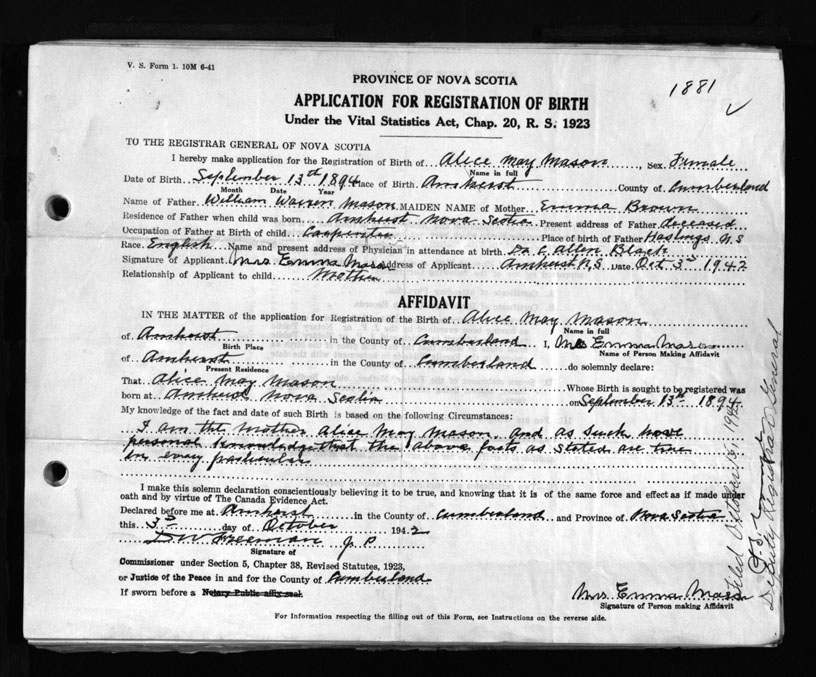 V. S. Form 1. 10M 6-41
1881
PROVINCE OF NOVA SCOTIA
APPLICATION FOR REGISTRATION OF BIRTH
Under the Vital Statistics Act, Chap. 20, R. S. 1923
TO THE REGISTRAR GENERAL OF NOVA SCOTIA
I hereby make application for the Registration of Birth of Alice May Mason, Sex Female
Name in full
Date of Birth September 13th 1894 Place of Birth Amherst County of Cumberland
Month Date Year
Name of Father William Warren Mason MAIDEN NAME of Mother Emma Brown
Residence of Father when child was born Amherst Nova Scotia Present address of Father deceased
Occupation of Father at Birth of child Carpenter Place of birth of Father Hastings N S
Race English Name and present address of Physician in attendance at birth Dr C Allen Black
Signature of Applicant Mrs Emma Mason Address of Applicant Amherst N.S. Date Oct 3d 1942
Relationship of Applicant to child Mother
AFFIDAVIT
IN THE MATTER of the application for Registration of the Birth of Alice May Mason
Name in full
of Amherst in the County of Cumberland I, Mrs Emma Mason
Birth Place Name of Person Making Affidavit
of Amherst in the County of Cumberland do solemnly declare:
Present Residence
That Alice May Mason Whose Birth is sought to be registered was
born at Amherst Nova Scotia on September 13th 1894
My knowledge of the fact and date of such Birth is based on the following Circumstances:
I am the mother Alice May Mason and as such have
personal knowledge that the above facts as stated are true
in every particular
I make this solemn declaration conscientiously believing it to be true, and knowing that it is of the same force and effect as if made under
oath and by virtue of The Canada Evidence Act.
Declared before me at Amherst in the County of Cumberland and Province of Nova Scotia
this 3d day of October 1942
Freeman J P
Signature of
Commissioner under Section 5, Chapter 38, Revised Statutes, 1923,
or Justice of the Peace in and for the County of Cumberland
If sworn before a Notary Public affix seal
Mrs Emma Mason
Signature of Person making Affidavit
For Information respecting the filling out of this Form, see Instructions on the reverse side.
Filed October 1942
Deputy Registrar General